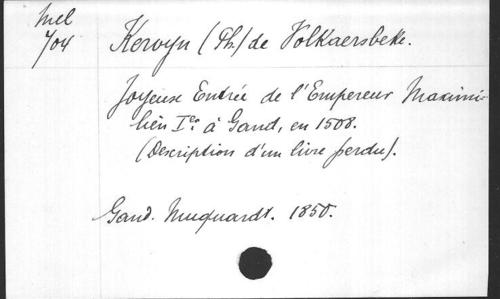 Mel
704
Kervyn (Ph.) de Volkaersbeke.
Joyeuse Entrée de l'Empereur Maximi-
lien Ier à Gand, en 1508.
(Description d'un livre perdu).
Gand. Muquardt. 1850.